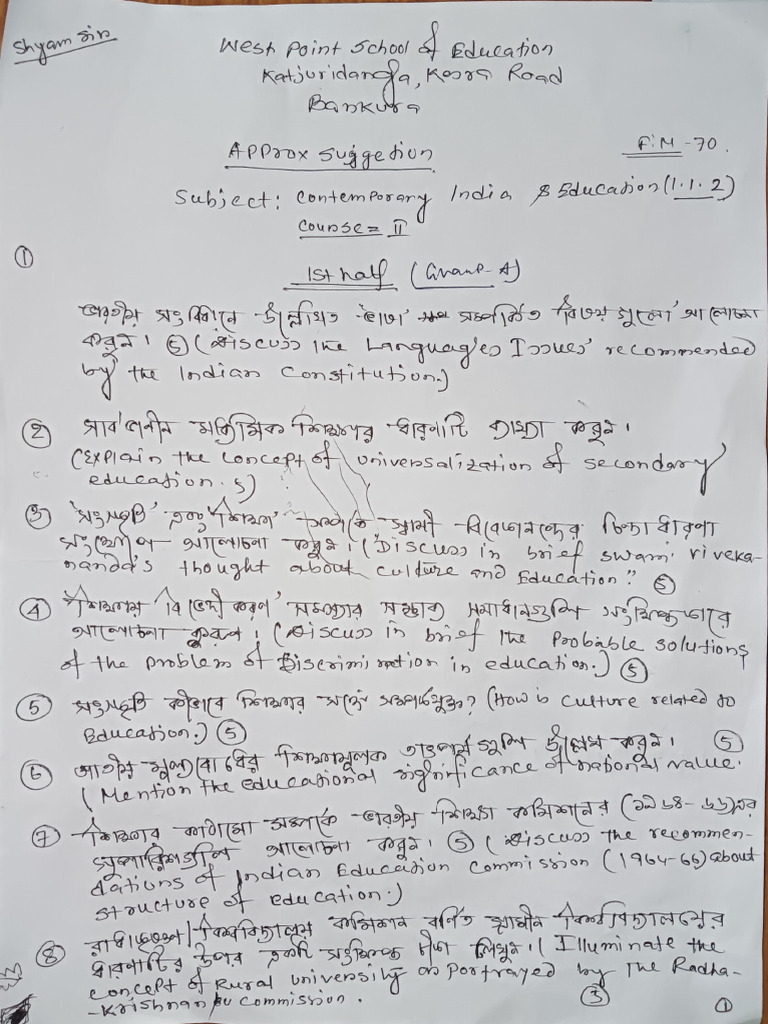 Shyam sir
West Point School of Education
Katjuridanga, Kesra Road
Bankura
Approx Suggetion
F.M - 70.
Subject: Contemporary India & Education (1.1.2)
Course = II
① 1st half (Group-A)
ভারতীয় সংবিধানে উল্লিখিত 'ভাষা' সম্পর্কিত বিষয় গুলো আলোচনা
করুন। ⑤ (Discuss the Languages Issues recommended
by the Indian Constitution.)
② সার্বজনীন মাধ্যমিক শিক্ষার ধারণাটি ব্যাখ্যা করুন।
(Explain the concept of universalization of secondary
education. 5)
③ 'সংস্কৃতি' এবং 'শিক্ষা' সম্পর্কে স্বামী বিবেকানন্দের চিন্তা ধারণা
সংক্ষেপে আলোচনা করুন। ("Discuss in brief swami viveka-
nanda's thought about culture and Education" ⑤
④ শিক্ষায় 'বিভেদী করণ' সমস্যার সম্ভাব্য সমাধানগুলি সংক্ষিপ্তভাবে
আলোচনা করুন। (Discuss in brief the Probable solutions
of the problem of Discrimination in education.) ⑤
⑤ সংস্কৃতি কীভাবে শিক্ষার সঙ্গে সম্পর্কযুক্ত? (How is culture related to
Education.) ⑤
⑥ জাতীয় মূল্যবোধের শিক্ষামূলক তাৎপর্য গুলি উল্লেখ করুন। ⑤
(Mention the educational significance of national value.
⑦ শিক্ষার কাঠামো সম্পর্কে ভারতীয় শিক্ষা কমিশনের (১৯৬৪-৬৬)এর
সুপারিশগুলি আলোচনা করুন। ⑤ (Discuss the recommen-
dations of Indian Education Commission (1964-66) about
structure of education.)
⑧ রাধাকৃষ্ণণ/বিশ্ববিদ্যালয় কমিশন বর্ণিত গ্রামীন বিশ্ববিদ্যালয়ের
ধারণাটির উপর একটি সংক্ষিপ্ত টীকা লিখুন। (Illuminate the
concept of Rural University as Portrayed by The Radha-
-krishnan Commission.
⑤
①